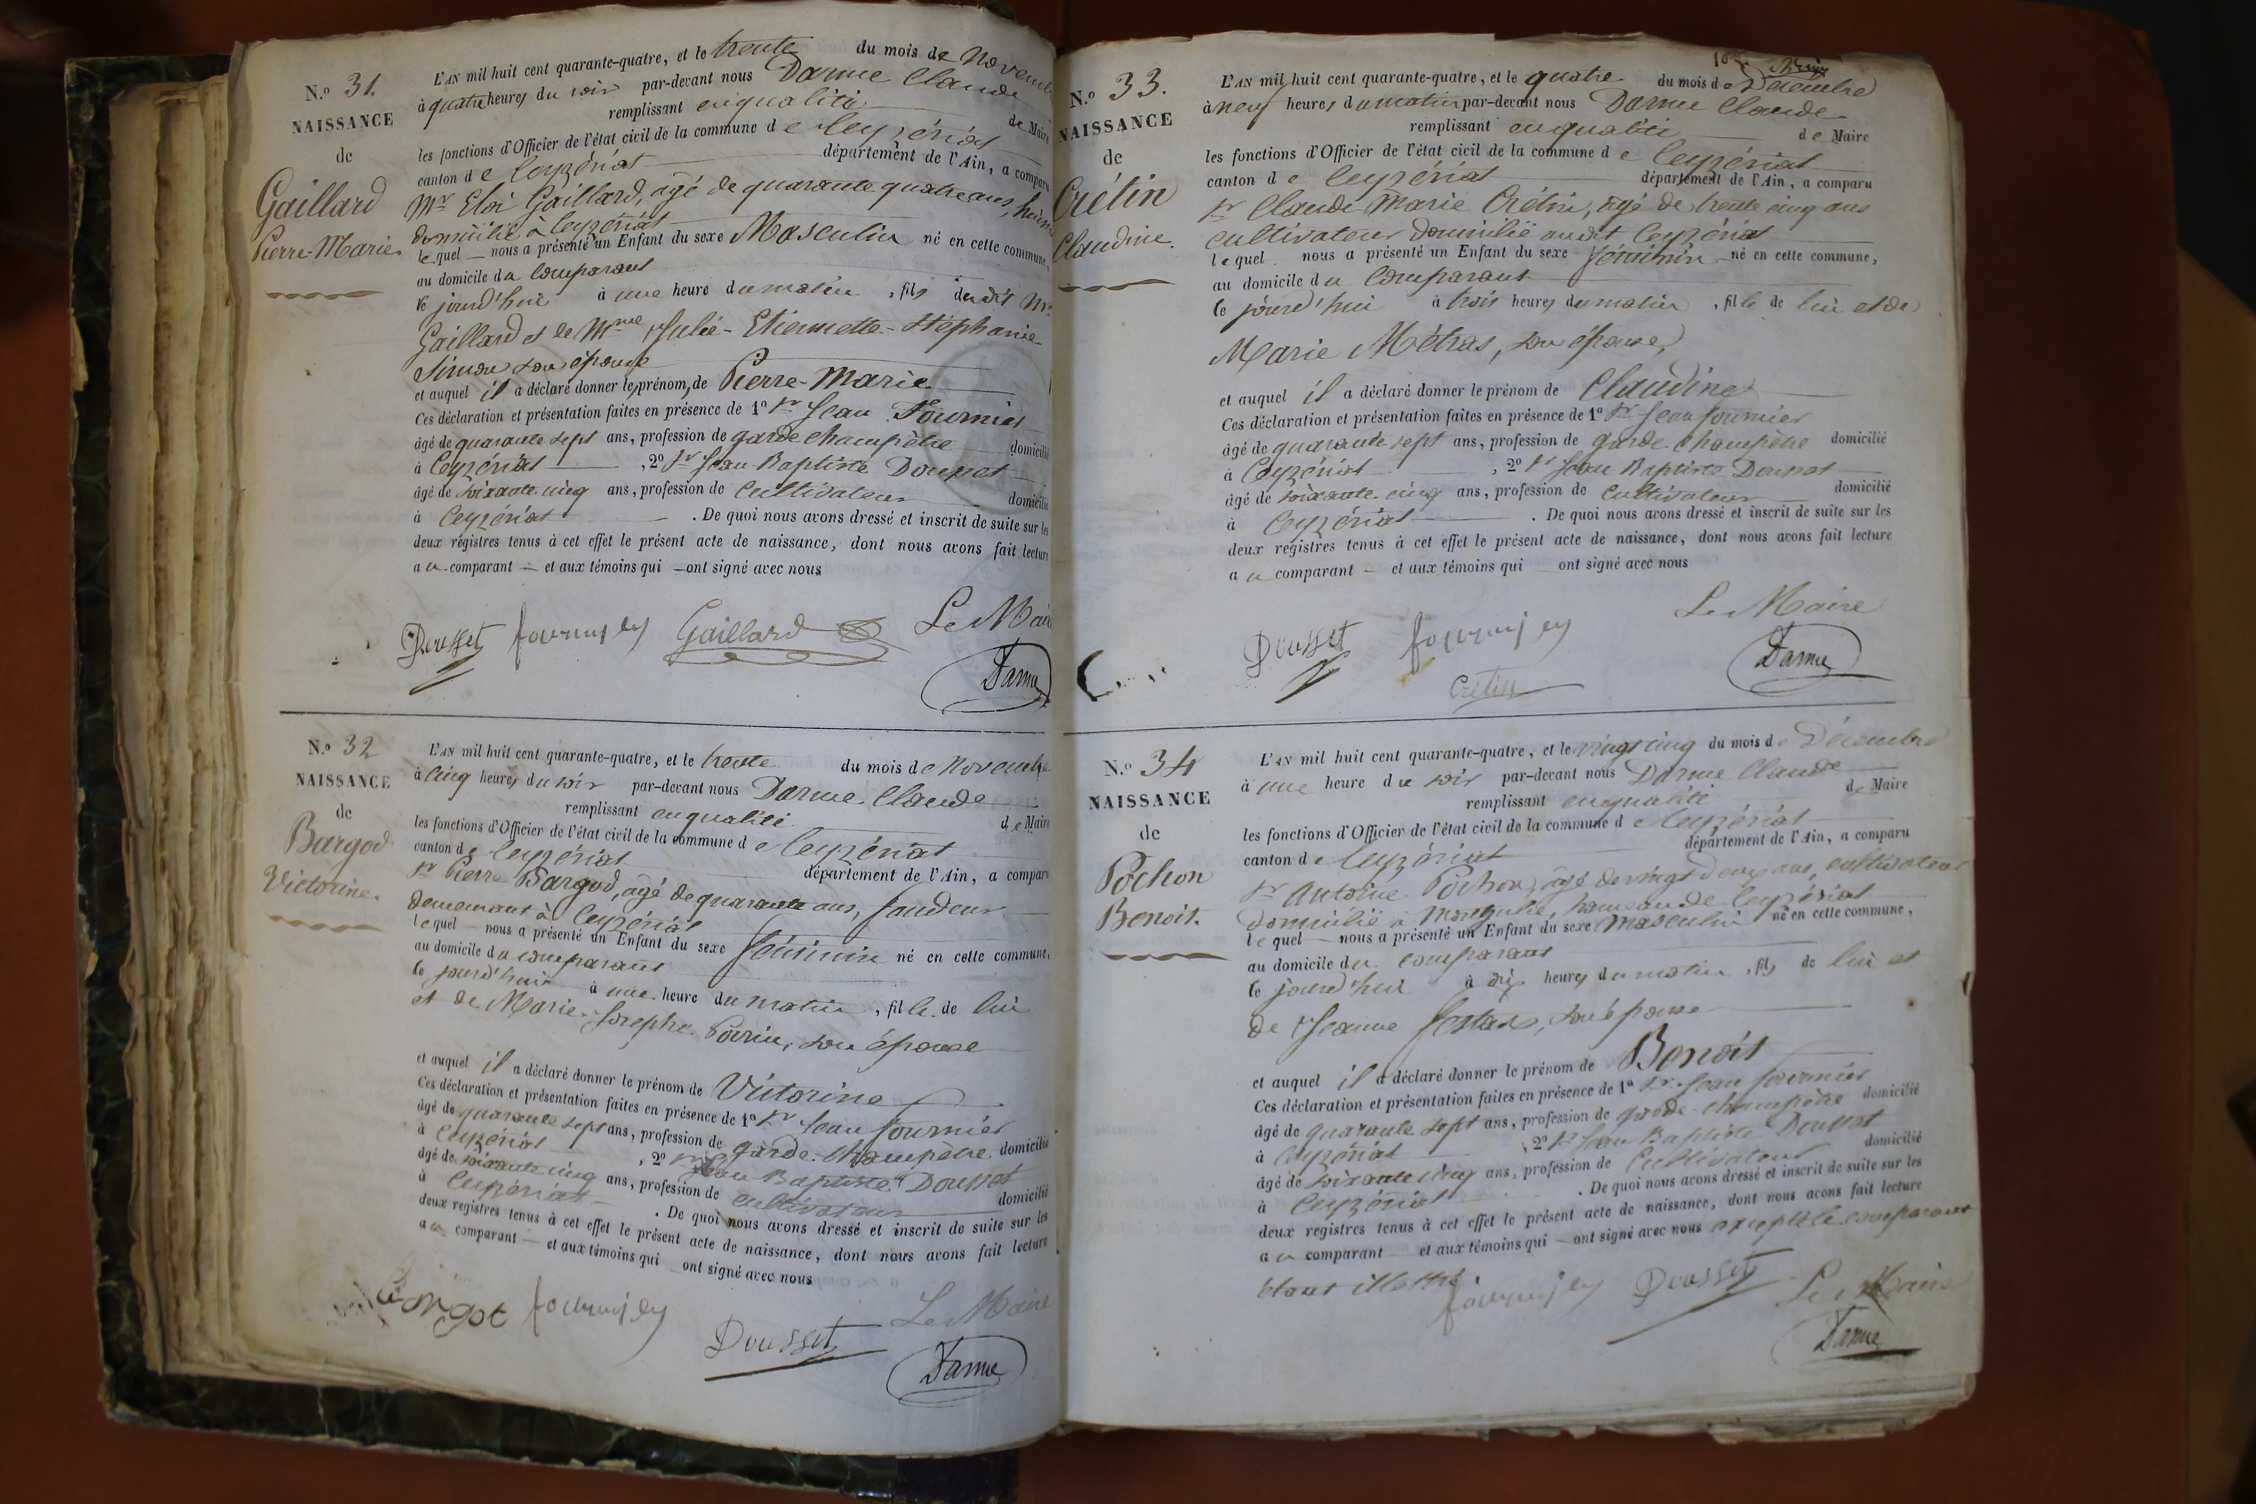 N.º 31.
NAISSANCE
de
Gaillard
Pierre-Marie.
L'AN mil huit cent quarante-quatre, et le trente du mois de Novembre
à quatre heures du soir par-devant nous Darme Claude
remplissant en qualité de Maire
les fonctions d'Officier de l'état civil de la commune de Ceyzériat
canton de Ceyzériat département de l'Ain, a comparu
Mr Eloi Gaillard, âgé de quarante quatre ans,
domicilié à Ceyzériat
lequel nous a présenté un Enfant du sexe Masculin né en cette commune,
au domicile du comparant
le jourd'hui à une heure du matin, fils dudit Mr
Gaillard et de Mme Julie-Etiennette-Stéphanie
Simon son épouse
et auquel il a déclaré donner les prénoms de Pierre-Marie
Ces déclaration et présentation faites en présence de 1º Sr Jean Fournier
âgé de quarante sept ans, profession de garde champêtre domicilié
à Ceyzériat, 2º Sr Jean Baptiste Dousset
âgé de soixante cinq ans, profession de cultivateur domicilié
à Ceyzériat. De quoi nous avons dressé et inscrit de suite sur les
deux régistres tenus à cet effet le présent acte de naissance, dont nous avons fait lecture
au comparant et aux témoins qui ont signé avec nous
Le Maire
Dousset Gaillard
Darme
N.º 32
NAISSANCE
de
Bargod
Victorine.
L'AN mil huit cent quarante-quatre, et le trente du mois de Novembre
à cinq heures du soir par-devant nous Darme Claude
remplissant en qualité de Maire
les fonctions d'Officier de l'état civil de la commune de Ceyzériat
canton de Ceyzériat département de l'Ain, a comparu
Sr Pierre Bargod, âgé de quarante ans,
demeurant à Ceyzériat
lequel nous a présenté un Enfant du sexe féminin né en cette commune,
au domicile du comparant
le jourd'hui à une heure du matin, fille de lui
et de Marie-Josephe Poirin, son épouse
et auquel il a déclaré donner le prénom de Victorine
Ces déclaration et présentation faites en présence de 1º Sr Jean Fournier
âgé de quarante sept ans, profession de garde-champêtre domicilié
à Ceyzériat, 2º Sr Jean Baptiste Dousset
âgé de soixante cinq ans, profession de cultivateur domicilié
à Ceyzériat. De quoi nous avons dressé et inscrit de suite sur les
deux régistres tenus à cet effet le présent acte de naissance, dont nous avons fait lecture
au comparant et aux témoins qui ont signé avec nous
Le Maire
Dousset
Darme
N.º 33.
NAISSANCE
de
Crétin
Claudine.
L'AN mil huit cent quarante-quatre, et le quatre du mois de Décembre
à neuf heures du matin par-devant nous Darme Claude
remplissant en qualité de Maire
les fonctions d'Officier de l'état civil de la commune de Ceyzériat
canton de Ceyzériat département de l'Ain, a comparu
Sr Claude Marie Crétin, âgé de trente cinq ans
cultivateur domicilié audit Ceyzériat
lequel nous a présenté un Enfant du sexe féminin né en cette commune,
au domicile du comparant
le jourd'hui à trois heures du matin, fille de lui et de
Marie Métras, son épouse,
et auquel il a déclaré donner le prénom de Claudine
Ces déclaration et présentation faites en présence de 1º Sr Jean Fournier
âgé de quarante sept ans, profession de garde-champêtre domicilié
à Ceyzériat, 2º Sr Jean Baptiste Dousset
âgé de soixante cinq ans, profession de cultivateur domicilié
à Ceyzériat. De quoi nous avons dressé et inscrit de suite sur les
deux régistres tenus à cet effet le présent acte de naissance, dont nous avons fait lecture
au comparant et aux témoins qui ont signé avec nous
Le Maire
Dousset
Darme
Crétin
N.º 34
NAISSANCE
de
Pochon
Benoit.
L'AN mil huit cent quarante-quatre, et le vingt cinq du mois de Décembre
à une heure du soir par-devant nous Darme Claude
remplissant en qualité de Maire
les fonctions d'Officier de l'état civil de la commune de Ceyzériat
canton de Ceyzériat département de l'Ain, a comparu
Sr Antoine Pochon, âgé de vingt deux ans, cultivateur
domicilié à hameau de Ceyzériat
lequel nous a présenté un Enfant du sexe masculin né en cette commune,
au domicile du comparant
le jourd'hui à dix heures du matin, fils de lui et
de Jeanne son épouse
et auquel il a déclaré donner le prénom de Benoit
Ces déclaration et présentation faites en présence de 1º Sr Jean Fournier
âgé de quarante sept ans, profession de garde-champêtre domicilié
à Ceyzériat, 2º Sr Jean Baptiste Dousset
âgé de soixante cinq ans, profession de cultivateur domicilié
à Ceyzériat. De quoi nous avons dressé et inscrit de suite sur les
deux régistres tenus à cet effet le présent acte de naissance, dont nous avons fait lecture
au comparant et aux témoins qui ont signé avec nous excepté le comparant
étant illettré
Dousset Le Maire
Darme